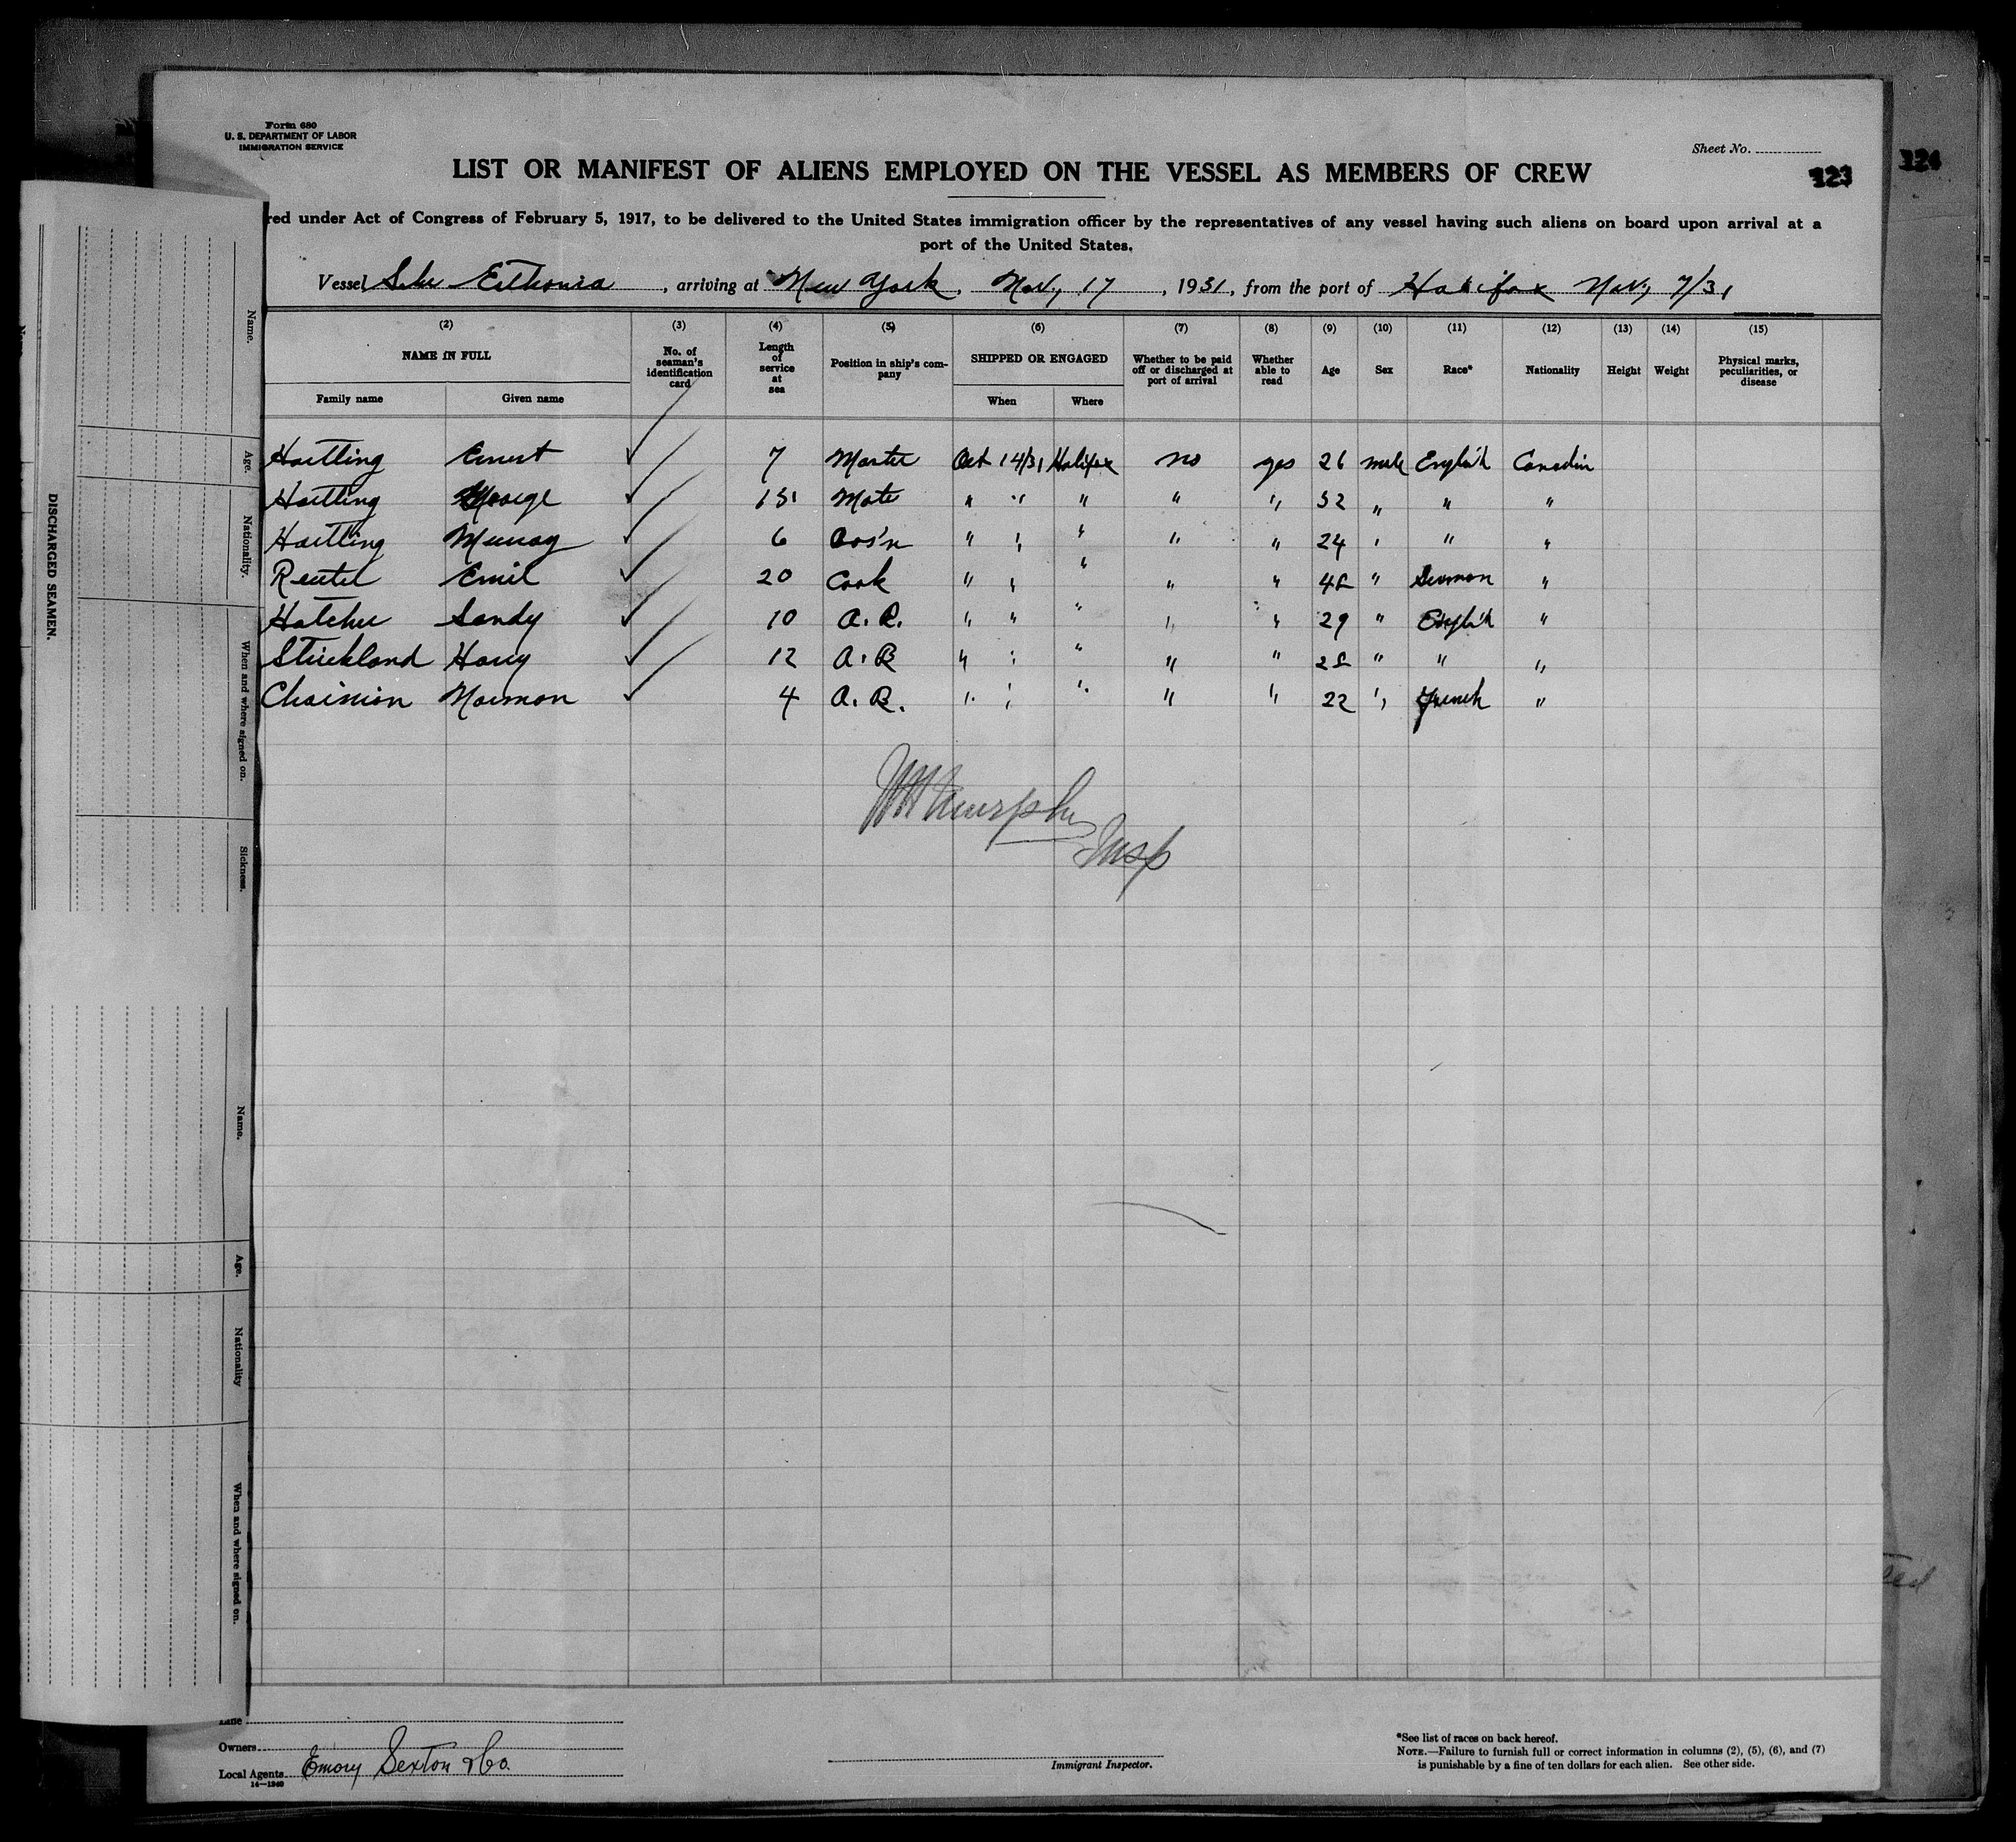 Form 680
U. S. DEPARTMENT OF LABOR
IMMIGRATION SERVICE
Sheet No.
123
124
LIST OR MANIFEST OF ALIENS EMPLOYED ON THE VESSEL AS MEMBERS OF CREW
red under Act of Congress of February 5, 1917, to be delivered to the United States immigration officer by the representatives of any vessel having such aliens on board upon arrival at a
port of the United States.
Vessel Schr Esthonia, arriving at New York, Nov, 17, 1931, from the port of Halifax Nov, 7/31
(2) (3) (4) (5) (6) (7) (8) (9) (10) (11) (12) (13) (14) (15)
NAME IN FULL No. of seaman's identification card Length of service at sea Position in ship's company SHIPPED OR ENGAGED Whether to be paid off or discharged at port of arrival Whether able to read Age Sex Race* Nationality Height Weight Physical marks, peculiarities, or disease
Family name Given name When Where
Hartling Ernest ✓ 7 Master Oct 14/31 Halifax no yes 26 male English Canadin
Hartling George ✓ 15 Mate " " " " " 52 " " "
Hartling Murray ✓ 6 Bos'n " " " " " 24 " " "
Reuter Emil ✓ 20 Cook " " " " " "  German "
Hatcher Sandy ✓ 10 A. B. " " " " " 29 " English "
Strickland Harry ✓ 12 A. B " " " " " " " "
Chaisson Norman ✓ 4 A. B. " " " " " 22 " French "
Murphy
Insp
DISCHARGED SEAMEN.
Name.
Age.
Nationality.
When and where signed on.
Sickness.
Name.
Age.
Nationality
When and where signed on.
Line
Owners
Local Agents Emory Sexton & Co.
14—1240
Immigrant Inspector.
*See list of races on back hereof.
NOTE.—Failure to furnish full or correct information in columns (2), (5), (6), and (7)
is punishable by a fine of ten dollars for each alien. See other side.